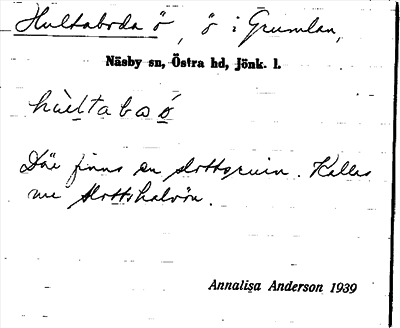 Hultaboda ö, ö i Grumlan,
Näsby sn, Östra hd, Jönk. l.
hùltabaó
Där finns en slottsruin. Kallas
nu Slottshalvön.
Annalisa Anderson 1939